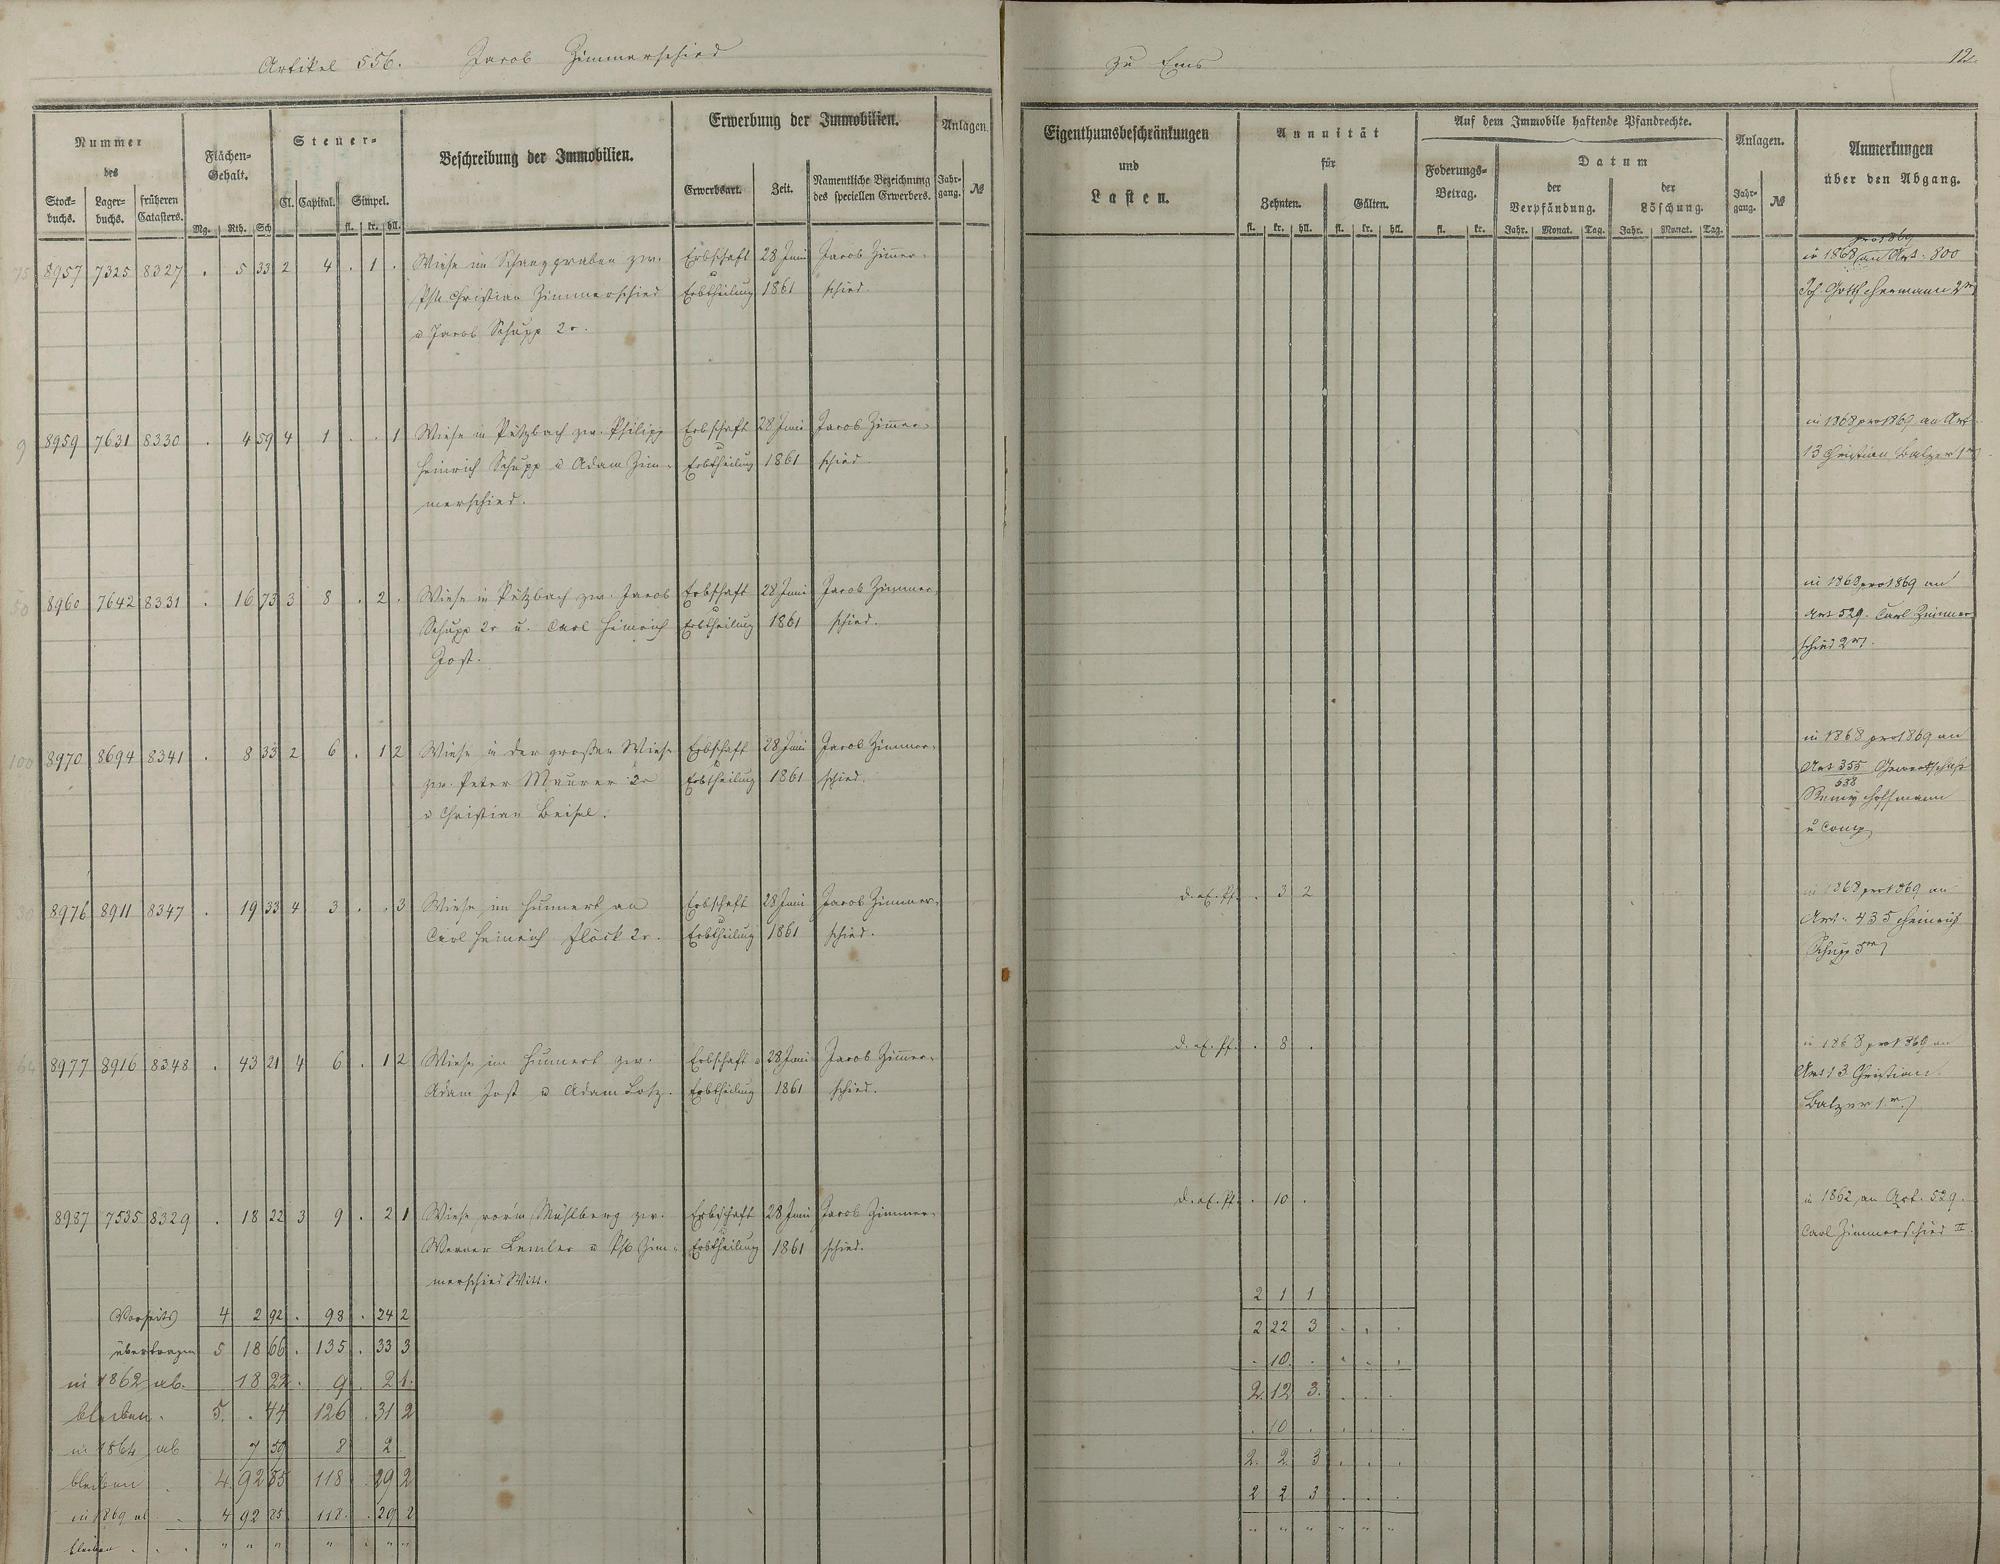 Artikel 556. Jacob Zimmerschied
zu Ems
12.
Nummer
des
Stock-
buchs.
Lager-
buchs.
früheren
Catasters.
Flächen-
Gehalt.
Mg. Rth. Sch
Steuer-
Cl. Capital. Simpel.
fl. kr. hll.
Beschreibung der Immobilien.
Erwerbung der Immobilien.
Erwerbsart. Zeit.
Namentliche Bezeichnung
des speciellen Erwerbers.
Anlagen.
Jahr-
gang. №
Eigenthumsbeschränkungen
und
Lasten.
Annuität
für
Zehnten. Gülten.
fl. kr. hll. fl. kr. hll.
Auf dem Immobile haftende Pfandrechte.
Foderungs-
Betrag.
fl. kr.
Datum
der
Verpfändung.
der
Löschung.
Jahr. Monat. Tag. Jahr. Monat. Tag.
Anlagen.
Jahr-
gang. №
Anmerkungen
über den Abgang.
75 8957 7325 8327 . 5 33 2 4 . 1 . Wiese im Schanzgraben zw. Erbschaft 28 Juni Jacob Zimer-
Phil Christian Zimmerschied Erbtheilung 1861 schied.
u Jacob Schupp 2r.
pro 1869
in 1868 an Art. 800
Joh. Gottf Hermann 2r
9 8959 7631 8330 . 4 59 4 1 . . 1 Wiese in Pützbach zw. Philipp Erbschaft 28 Juni Jacob Zimer-
Heinrich Schupp u Adam Zim- Erbtheilung 1861 schied
merschied.
in 1868 pro 1869 an Art
13 Christian Balzer 1r
50 8960 7642 8331 . 16 73 3 8 . 2 . Wiese in Pützbach zw. Jacob Erbschaft 28 Juni Jacob Zimmer-
Schupp 2r u. Carl Heinrich Erbtheilung 1861 schied.
Jost.
in 1868 pro 1869 an
Art 529. Carl Zimmer
schied 2r.
100 8970 8694 8341 . 8 33 2 6 . 1 2 Wiese in der großen Wiese Erbschaft 28 Juni Jacob Zimmer-
zw. Peter Maurer 2r Erbtheilung 1861 schied.
u Christian Beisel.
in 1868 pro 1869 an
Art 355 Gewerkschaft
538
Remy Hoffmann
u Comp
30 8976 8911 8347 . 19 33 4 3 . . 3 Wiese im Hunnert an Erbschaft 28 Juni Jacob Zimmer-
Carl Heinrich Flöck 2r. Erbtheilung 1861 schied.
. 3 2
in 1868 pro 1869 an
Art. 435 Heinrich
Schupp 5r
64 8977 8916 8348 . 43 21 4 6 . 1 2 Wiese im Hunnert zw. Erbschaft u 28 Juni Jacob Zimer-
Adam Jost u Adam Lotz. Erbtheilung 1861 schied.
. 8 .
in 1868 pro 1869 an
Art 13 Christian
Balzer 1r.
8987 7535 8329 . 18 22 3 9 . 2 1 Wiese vor'm Mühlberg zw. Erbschaft 28 Juni Jacob Zimmer-
Werner Lemler u Ph Zim- Erbtheilung 1861 schied.
merschied Witt.
. 10 .
in 1862 an Art. 529.
Carl Zimmerschied II.
Vorseits 4 2 92 . 98 . 24 2
2 1 1
übertragen 5 18 66 . 135 . 33 3
2 22 3 . . .
in 1862 ab. 18 22 . 9 . 2 1.
. 10 . . . .
bleiben. 5. . 44 126 . 31 2
2. 12 3. . . .
in 1864 ab 7 59 8 2
. 10 . . . .
bleiben . 4. 92 85 118 . 29 2
2. 2. 3 . . .
in 1869 ab . 4 92 85 118. . 29 2
2 2 3 . . .
bleiben . . . " " " " " "
" " " " " "